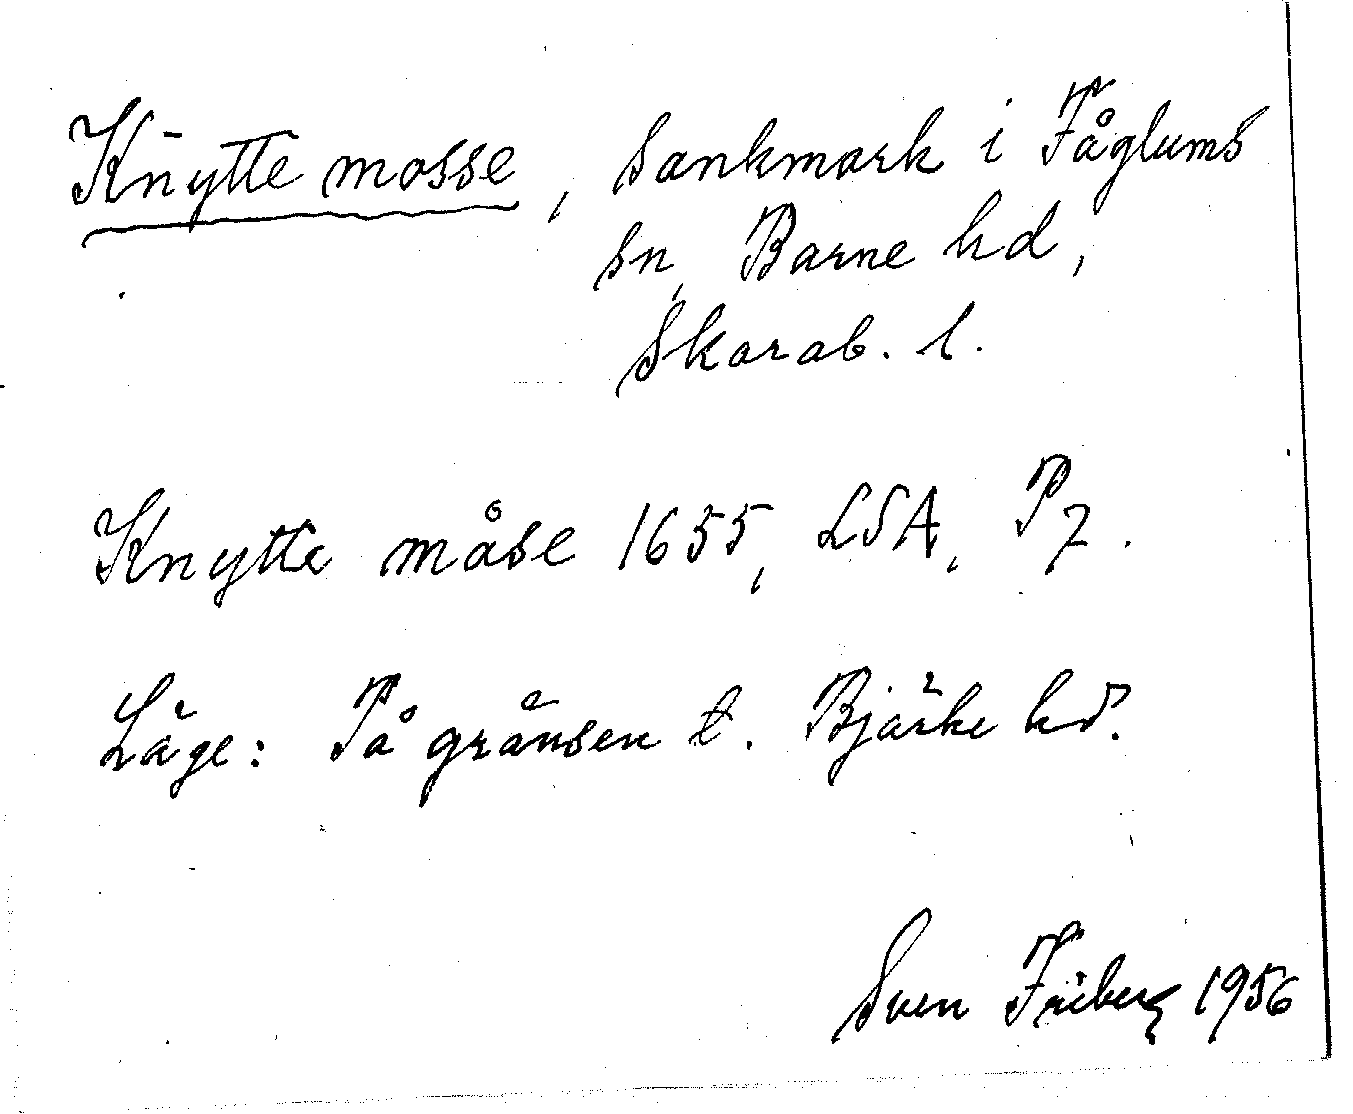 Knytte mosse, sankmark i Fåglums
sn, Barne hd,
Skarab. l.
Knytte måse 1655, LSA, P7.
Läge: På gränsen t. Bjärke hd.
Sven Friberg 1956